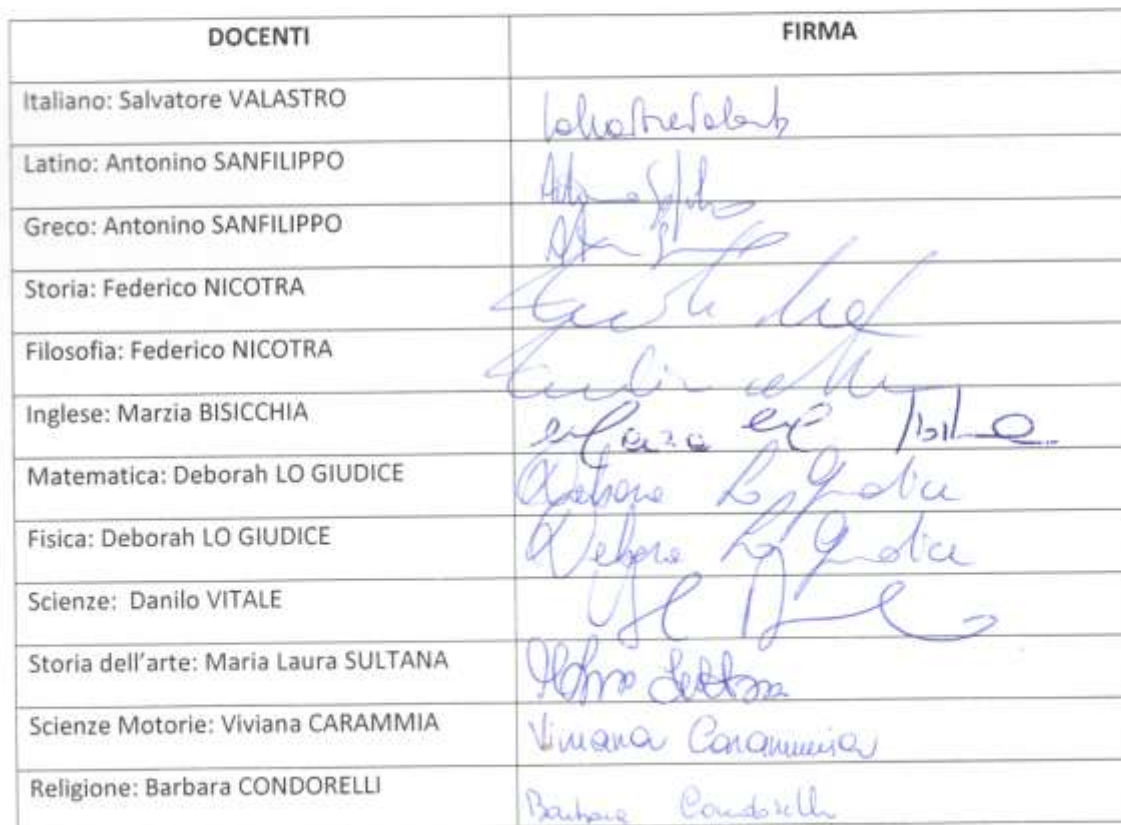 DOCENTI FIRMA
Italiano: Salvatore VALASTRO
Latino: Antonino SANFILIPPO
Greco: Antonino SANFILIPPO
Storia: Federico NICOTRA
Filosofia: Federico NICOTRA
Inglese: Marzia BISICCHIA
Matematica: Deborah LO GIUDICE Lo Giudice
Fisica: Deborah LO GIUDICE Lo Giudice
Scienze: Danilo VITALE
Storia dell'arte: Maria Laura SULTANA
Scienze Motorie: Viviana CARAMMIA Viviana Carammia
Religione: Barbara CONDORELLI Barbara Condorelli